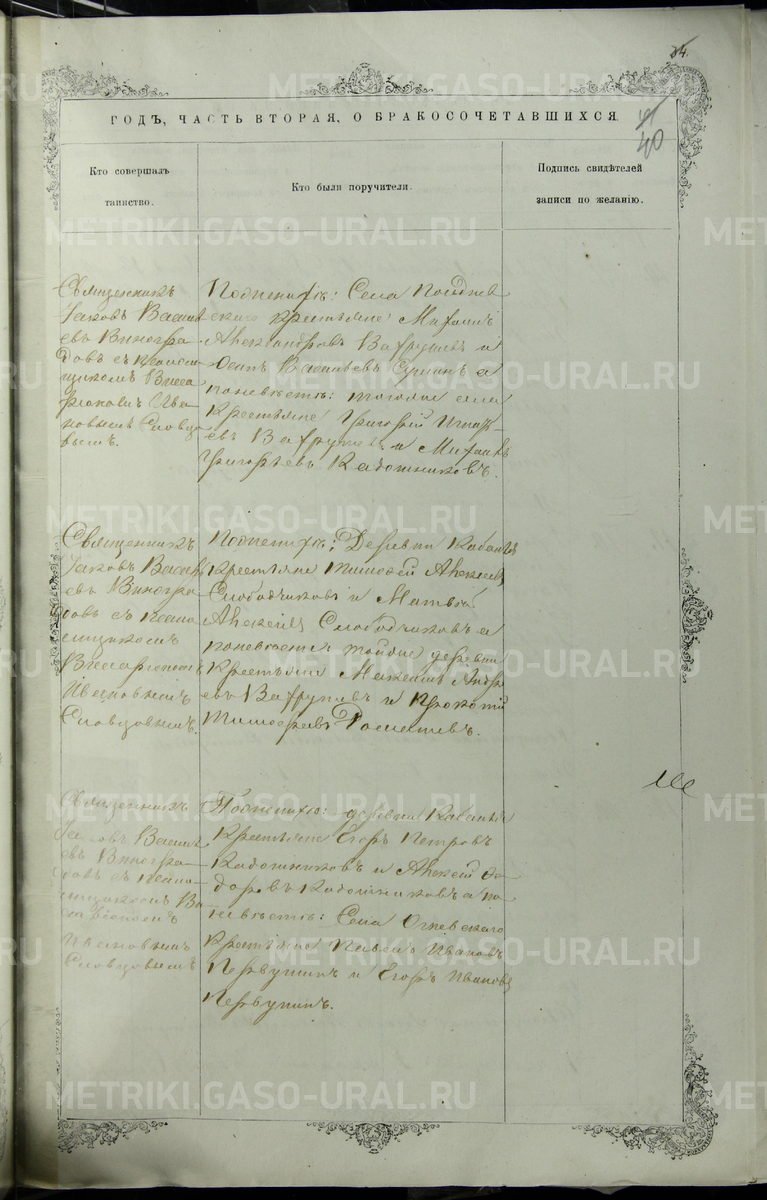 34.
ГОДЪ, ЧАСТЬ ВТОРАЯ, О БРАКОСОЧЕТАВШИХСЯ
40
Кто совершалъ
таинство.
Кто были поручители.
Подпись свидѣтелей
записи по желанію.
Священникъ
Iаковъ Василь
евъ Виногра-
довъ съ псалом
щикомъ Висса
ріономъ Ива
новымъ Словцо
вымъ.
Поженихѣ: Села
скаго крестьяне Михаилъ
Александровъ Вахрушевъ и
Осипъ Васильевъ а
поневѣстѣ: тогоже села
Крестьяне Григорій
евъ Вахрушевъ и Михаилъ
Григорьевъ Кадошниковъ.
Священникъ
Iаковъ Василь
евъ Виногра-
довъ съ псало
мщикомъ
Виссаріономъ
Ивановымъ
Словцовымъ.
Поженихѣ: Деревни
крестьяне Тимофей Алексѣевъ
Слободчиковъ и Матвѣй
Алексѣевъ Слободчиковъ а
поневѣстѣ тойже деревни
Крестьяне Максимъ Андре
евъ Вахрушевъ и Прокопій
Тимофеевъ
Священникъ
Iаковъ Василь
евъ Виногра-
довъ съ псало
мщикомъ Ви
ссаріономъ
Ивановымъ
Словцовымъ
Поженихѣ: деревни
Крестьяне Егоръ Петровъ
Кадошниковъ и Алексѣй Фе
доровъ Кадошниковъ а по
невѣстѣ: Села Огневскаго
Крестьяне Павелъ Ивановъ
Первушинъ и Егоръ Ивановъ
Первушинъ.
METRIKI.GASO-URAL.RU